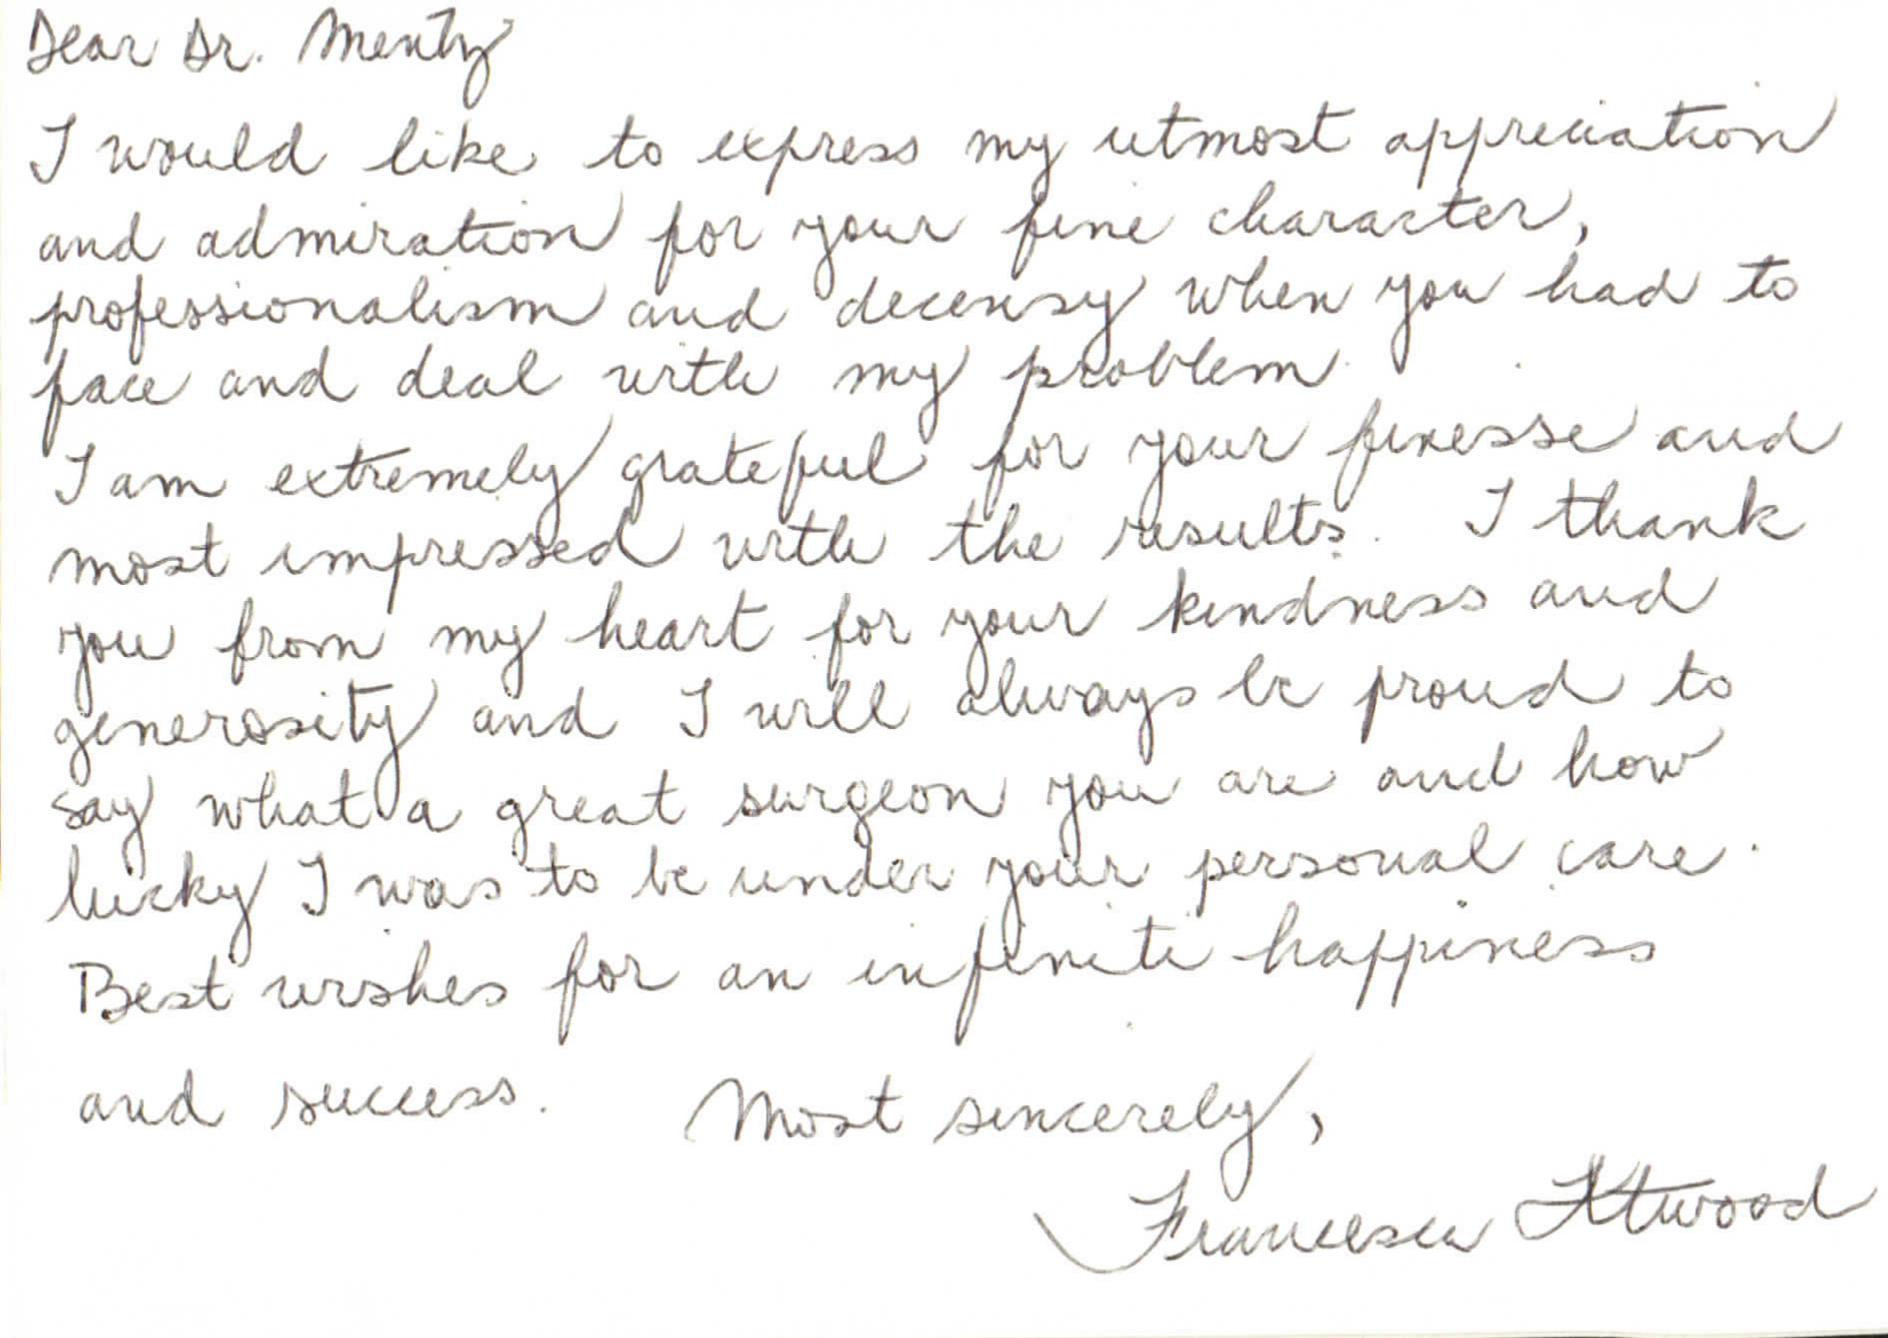 Dear Dr. Mentz
I would like to express my utmost appreciation
and admiration for your fine character,
professionalism and decensy when you had to
face and deal with my problem.
I am extremely grateful for your finesse and
most impressed with the results. I thank
you from my heart for your kindness and
generosity and I will always be proud to
say what a great surgeon you are and how
lucky I was to be under your personal care.
Best wishes for an infinite happiness
and success. Most sincerely,
Francesca Atwood